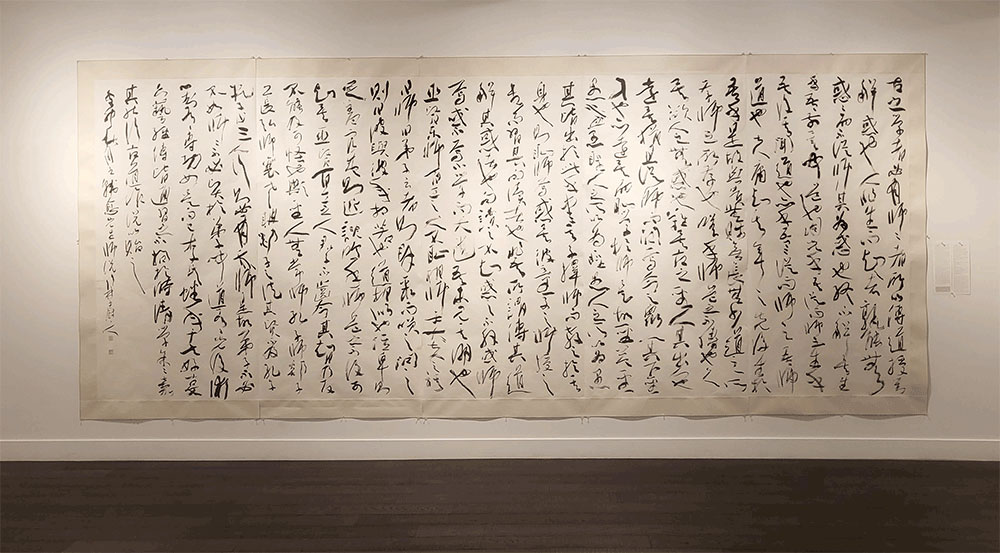 古之學者必有師師者所以傳道受業
解惑也人非生而知之者孰能無
惑惑而不從師其為惑也終不解矣生乎
吾前其聞道也固先乎吾吾從而師之生乎
吾後其聞道也亦先乎吾吾從而師之吾師
道也夫庸知其年之先後生於
吾乎是故無貴無賤無長無少道之所
存師之所存也嗟乎師道之不傳也久
矣欲人之無惑也難矣古之聖人其出人也
遠矣猶且從師而問焉今之眾人其下聖
人也亦遠矣而恥學於師是故聖益聖
愚益愚聖人之所以為聖愚人之所以為愚
其皆出於此乎愛其子擇師而教之於其
身也則恥師焉惑矣彼童子之師授之
書而習其句讀者也非吾所謂傳其道
解其惑者也句讀之不知惑之不解或師
焉或不焉小學而大遺吾未見其明也
巫醫樂師百工之人不恥相師士大夫之族
曰師曰弟子云者則群聚而笑之問之
則曰彼與彼年相若也道相似也位卑則
足羞官盛則近諛嗚呼師道之不復可
知矣巫醫百工之人君子不齒今其智乃反
不能及其可怪也歟聖人無常師孔子師郯子
萇弘師襄老聃郯子之徒其賢不及孔子
孔子曰三人行則必有我師是故弟子不必
不如師師不必賢於弟子聞道有先後術
業有專攻如是而已李氏子蟠年十七好古
文六藝經傳皆通習之不拘於時學於余余嘉
其能行古道作師說以貽之